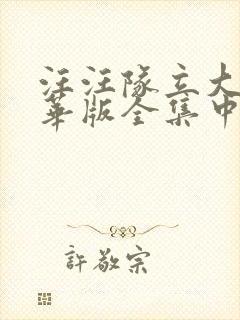 汪汪隊立大
華版全集中
許敬宗